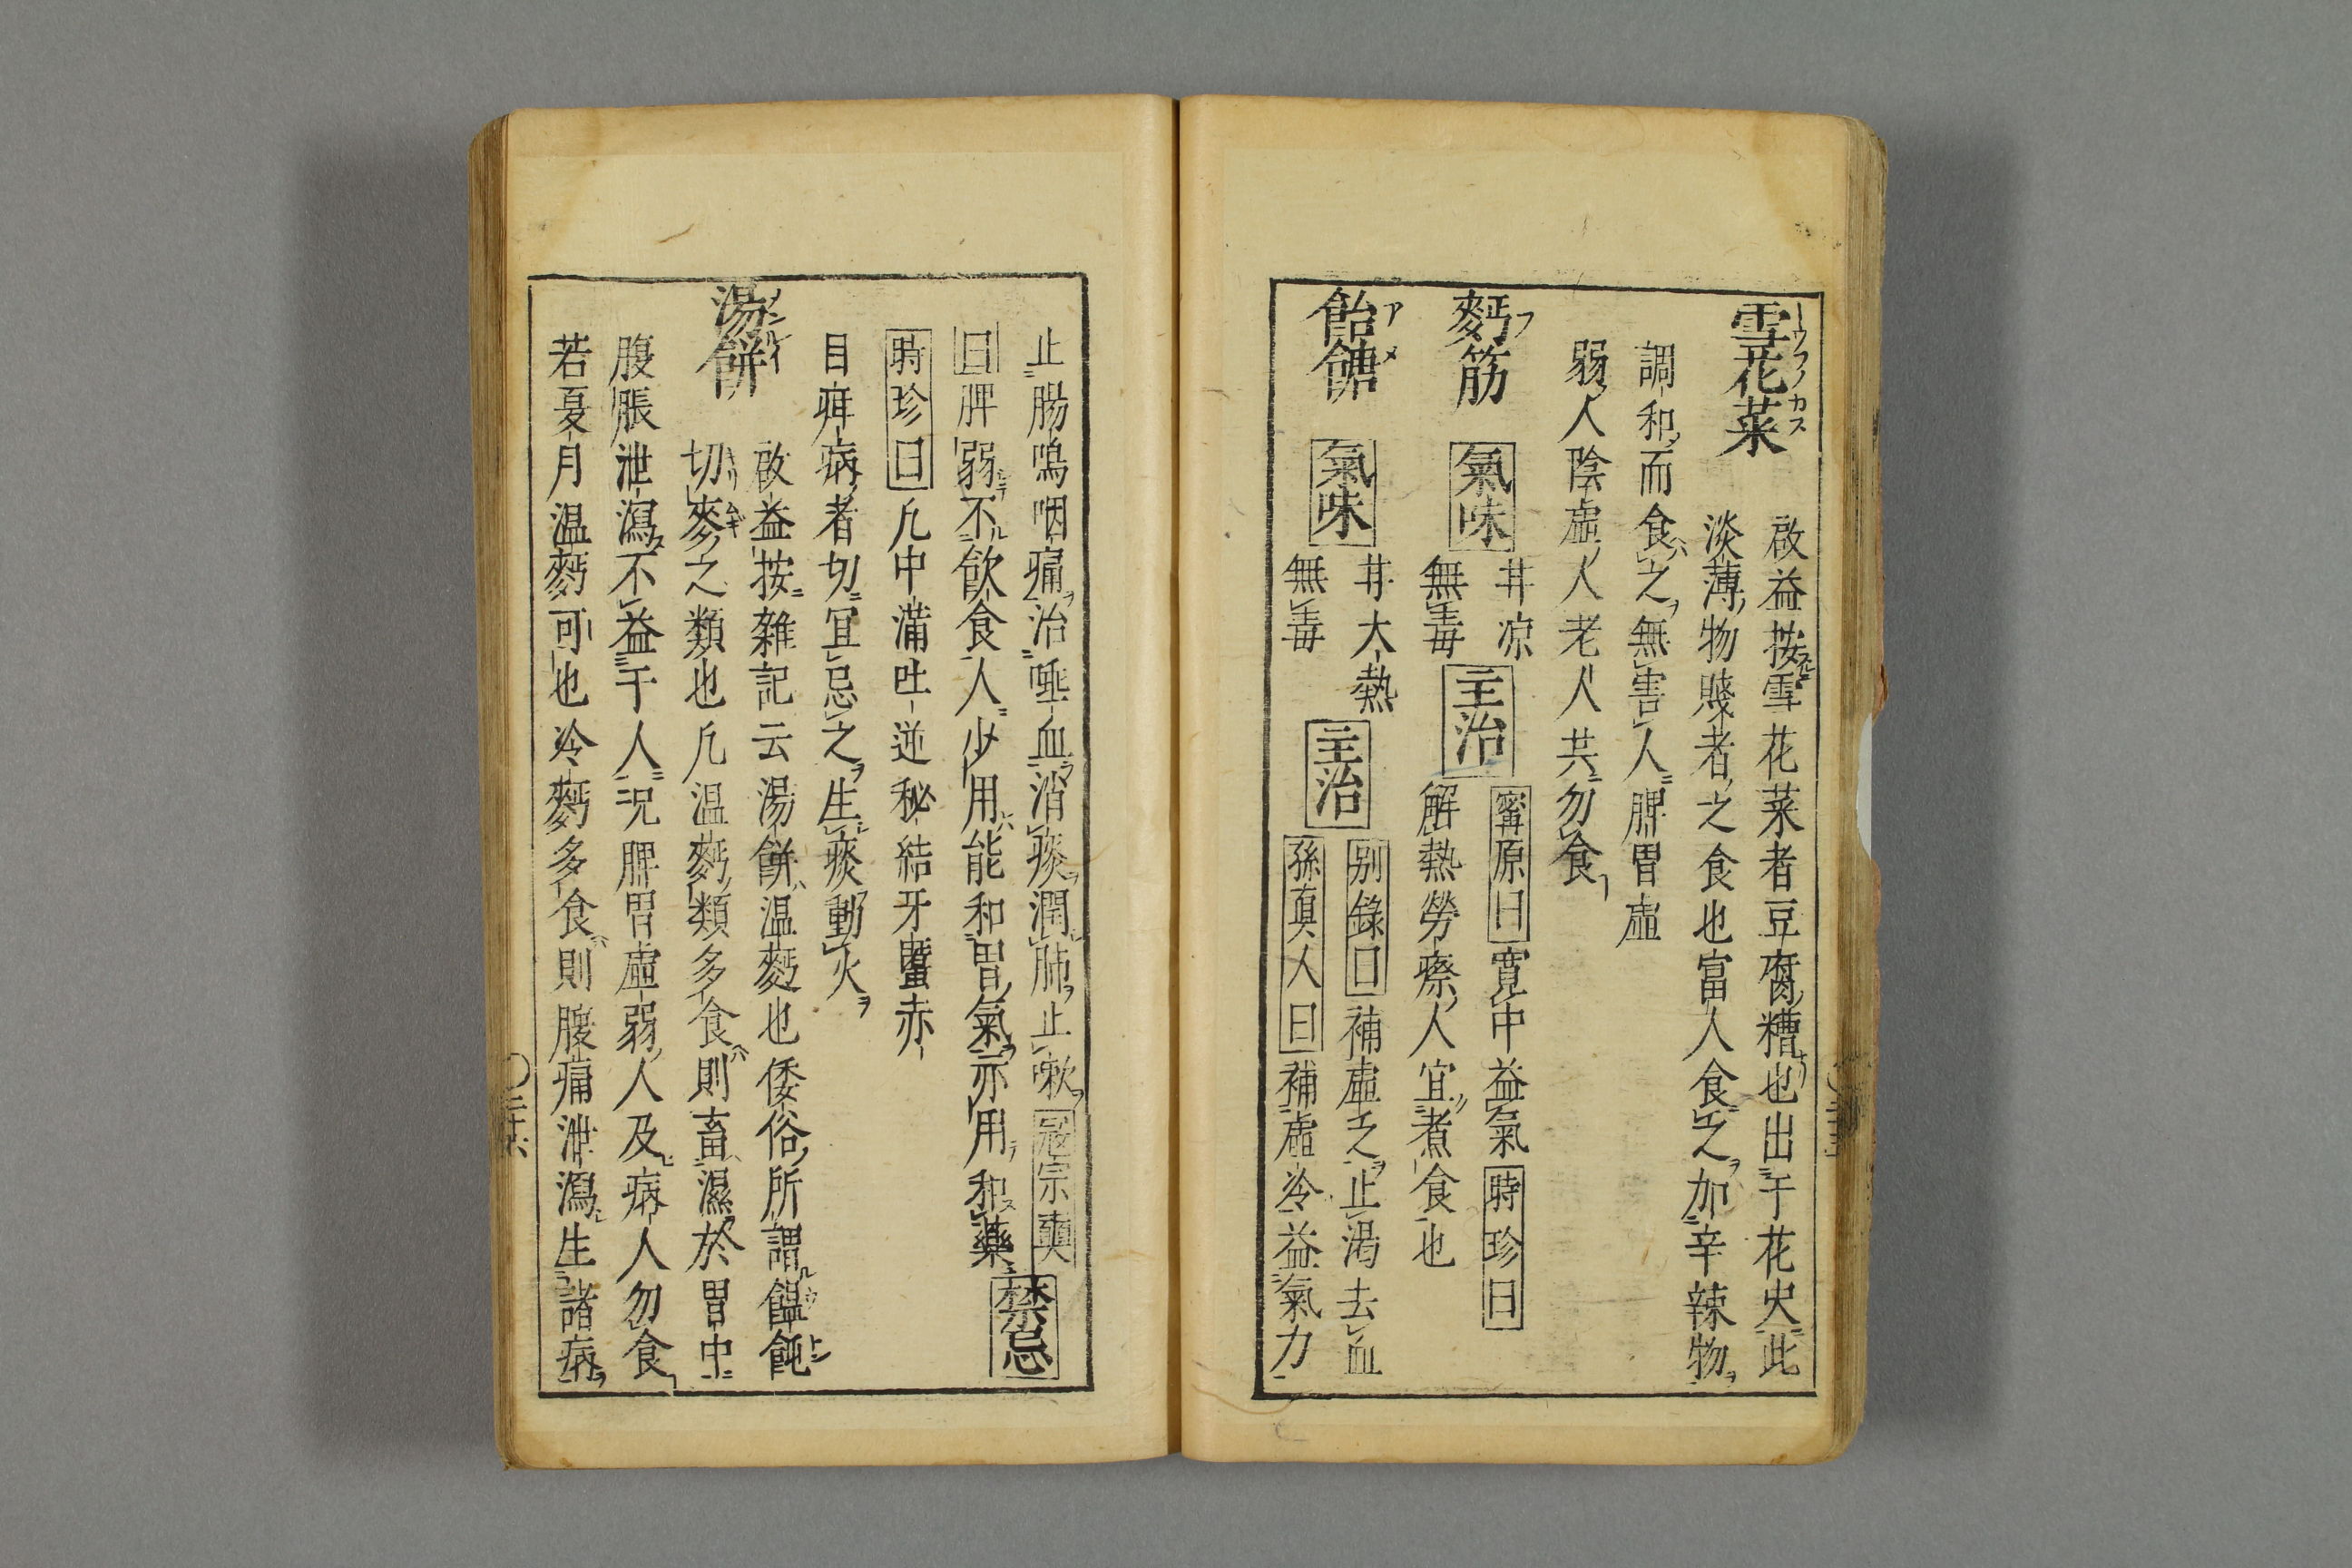 雪花菜
啟益按雪花菜者豆腐糟也出于花史此
淡薄物賤者之食也富人食之加辛辣物
調和而食之無害人脾胃虛
弱人陰虛人老人共勿食
麪筋
氣味
甘凉
無毒
主治
寗原曰寛中益氣時珍曰
解熱勞瘵人宜煮食也
飴餹
氣味
甘大熱
無毒
主治
别錄曰補虛乏止渴去血
孫真人曰補虛冷益氣力
止腸鳴咽痛治唾血消痰潤肺止嗽冦宗奭
曰脾弱不飲食人少用能和胃氣亦用和藥禁忌
時珍曰凢中滿吐逆秘結牙䘌赤
目疳病者切宜忌之生痰動火
湯餅
啟益按雜記云湯餅温麪也倭俗所謂饂飩
切麥之類也凢温麪類多食則畜濕於胃中
腹脹泄瀉不益于人况脾胃虛弱人及病人勿食
若夏月温麪可也冷麪多食則腹痛泄瀉生諸病